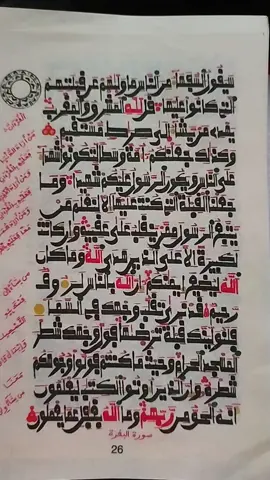 سيقول السفهاء من الناس ما وليهم عن قبلتهم
التي كانوا عليها قل لله المشرق والمغرب
يهدي من يشاء إلى صرط مستقيم
وكذلك جعلنكم أمة وسطا لتكونوا شهداء
على الناس ويكون الرسول عليكم شهيدا وما
جعلنا القبلة التي كنت عليها إلا لنعلم من
يتبع الرسول ممن ينقلب على عقبيه وإن كانت
لكبيرة إلا على الذين هدى الله وما كان
الله ليضيع إيمنكم إن الله بالناس لرءوف
رحيم قد نرى تقلب وجهك في السماء
فلنولينك قبلة ترضيها فول وجهك شطر
المسجد الحرام وحيث ما كنتم فولوا وجوهكم
شطره وإن الذين أوتوا الكتب ليعلمون
أنه الحق من ربهم وما الله بغفل عما يعملون
سورة البقرة
26